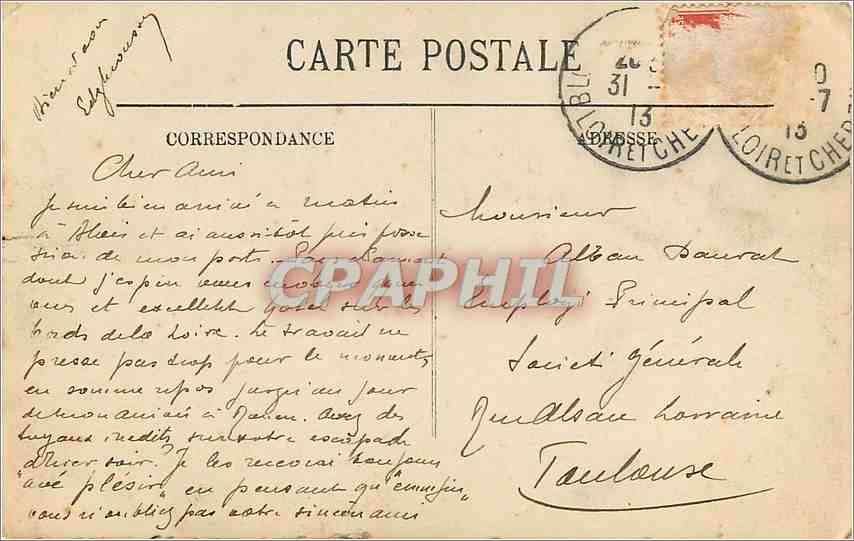 Bien à vous
CARTE POSTALE
CORRESPONDANCE
ADRESSE
31
13
LOIR ET CHER
-7
13
LOIR ET CHER
Cher Ami
Je suis bien arrivé ce matin
à Blois et ai aussitôt pris posses
sion de mon poste.
dont j'espère vous
et excellent sur les
bords de la Loire. Le travail ne
presse pas trop pour le moment
en somme repos jusqu'au jour
de mon arrivée à Avez des
tuyaux inédits sur votre escapade
d'hier soir? Je les recevrai toujours
"avé plésir" en pensant qu'
vous n'oubliez pas votre sincère ami
Monsieur
Alban Daurat
Employé Principal
Société Générale
Rue Alsace Lorraine
Toulouse
CPAPHIL